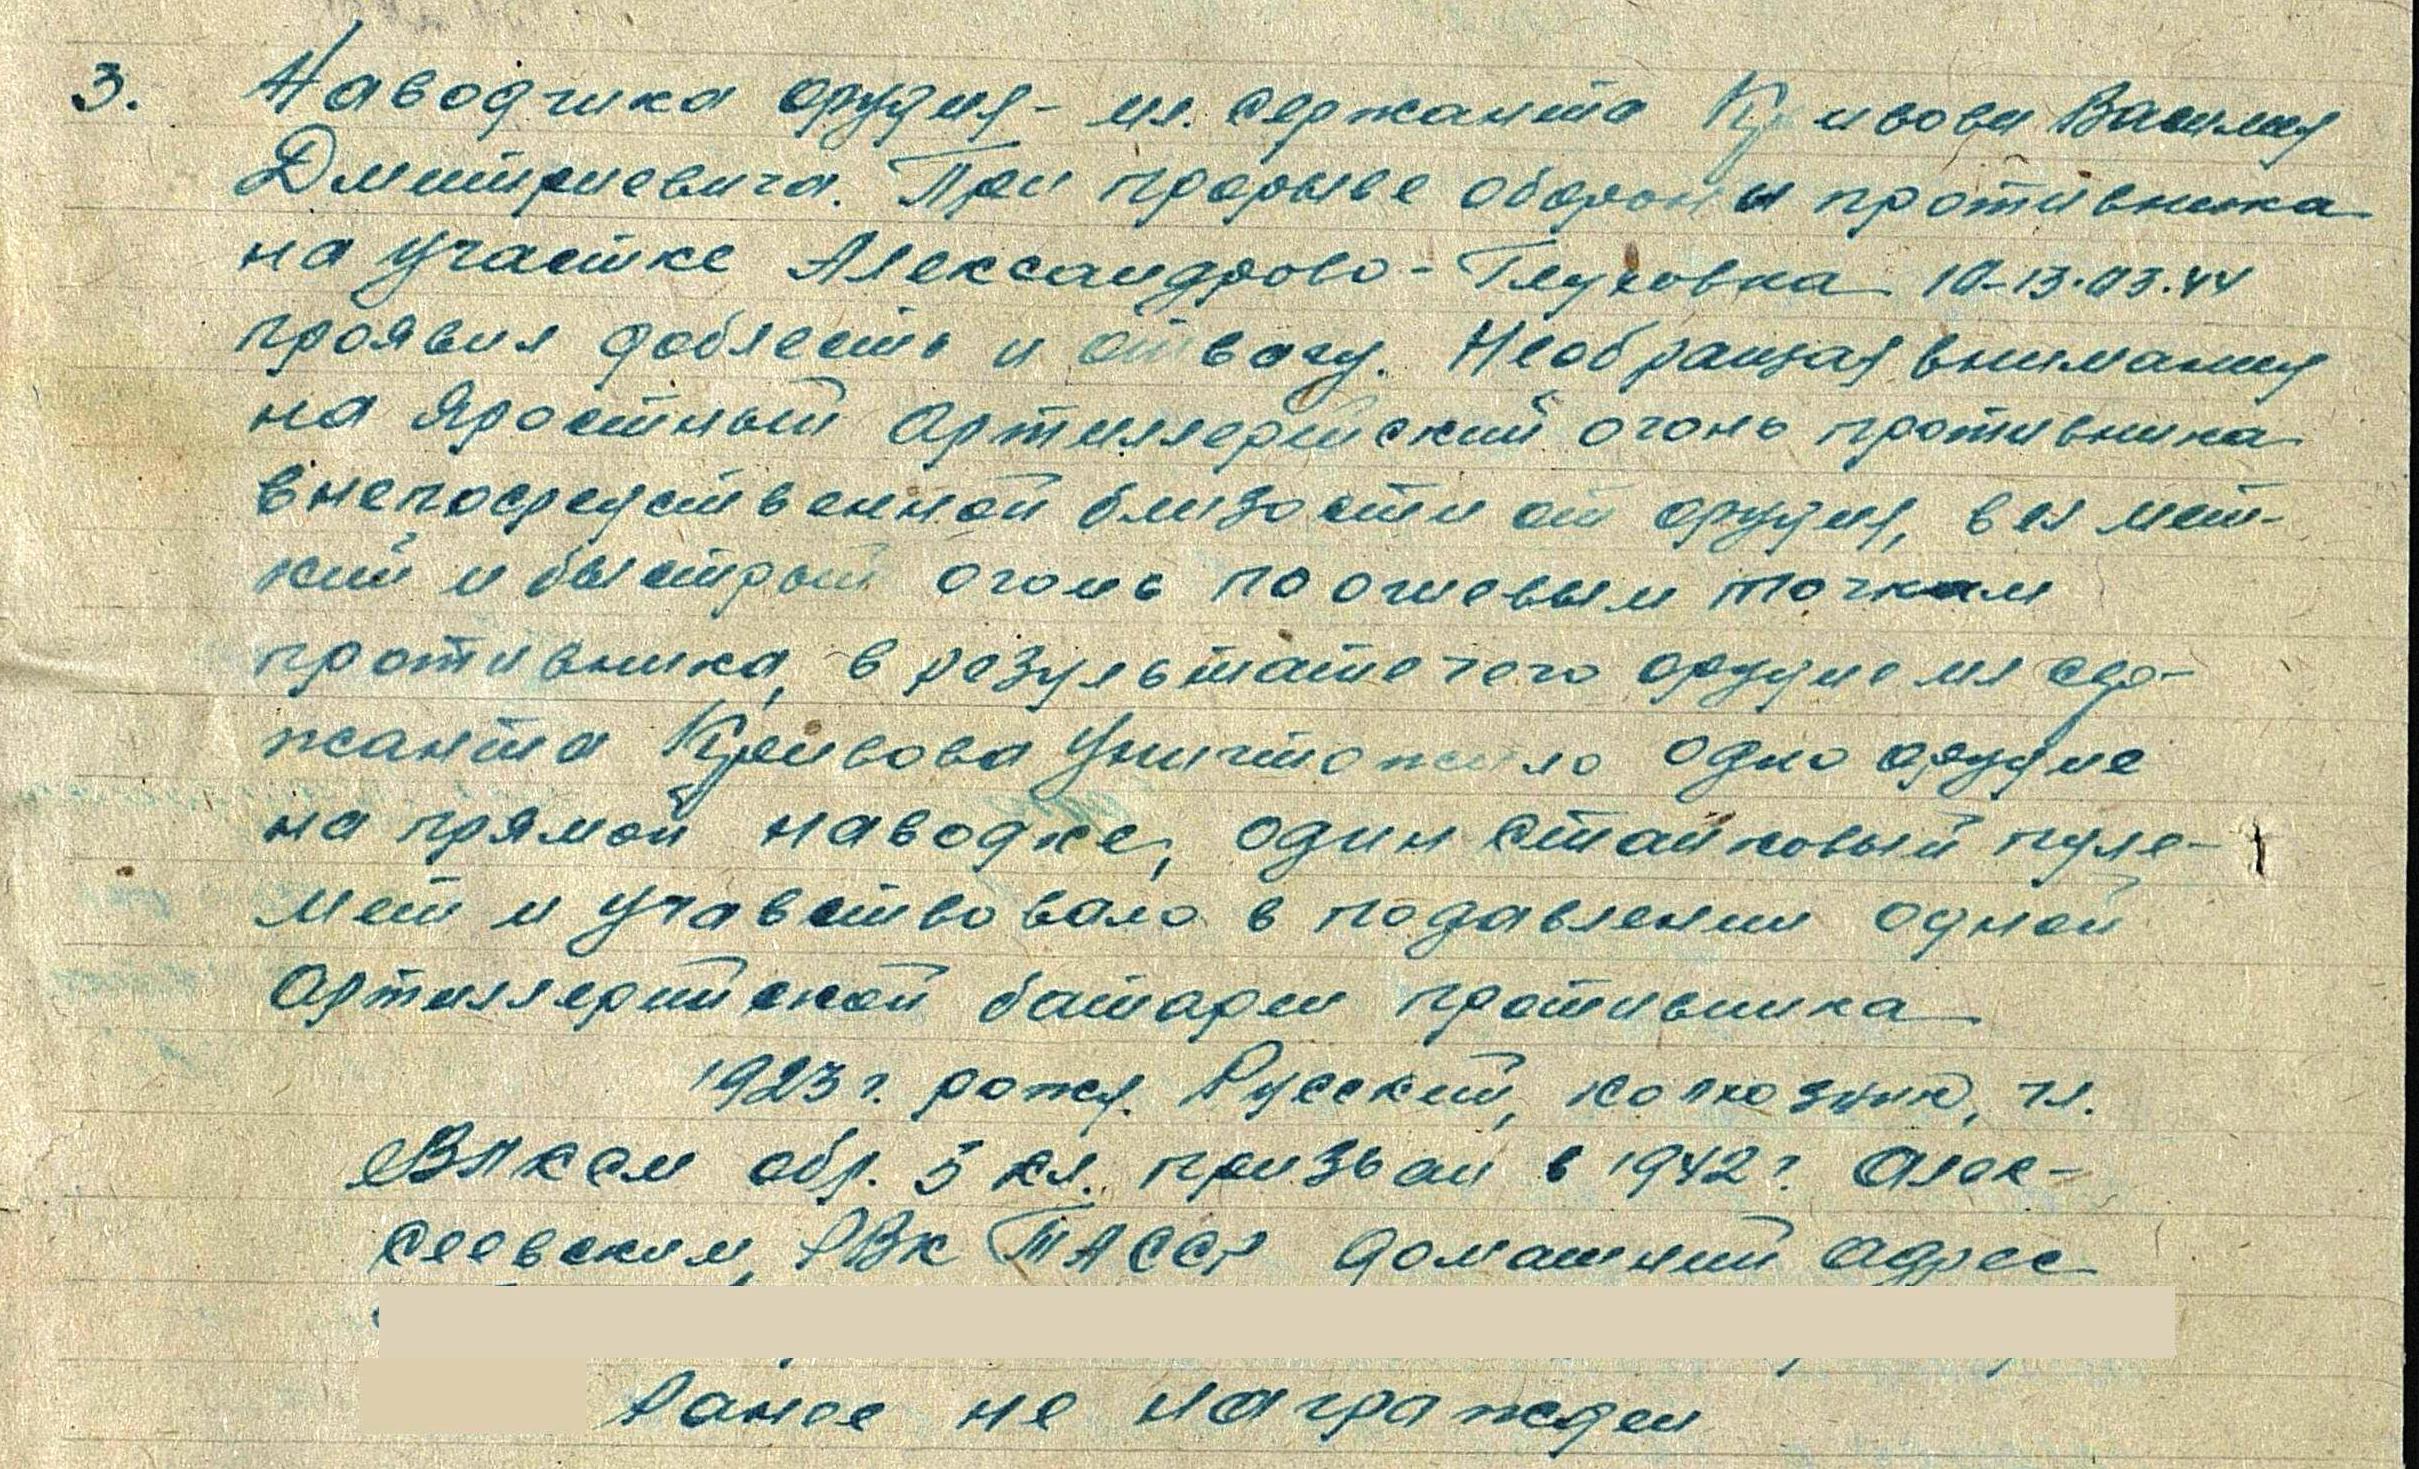 3. Наводчика орудия - мл. сержанта Кривова Василия
Дмитриевича. При прорыве обороны противника
на участке Александрово - Глуховка 10-13.03.44
проявил доблесть и отвагу. Необращая внимания
на яростный артиллерийский огонь противника
внепосредственной близости от орудия, вел мет-
кий и быстрый огонь по огневым точкам
противника, в результате чего орудие мл сер-
жанта Кривова уничтожило одно орудие
на прямой наводке, один станковый пуле-
мет и учавствовало в подавлении одной
артиллерийской батареи противника
1923 г. рожд. Русский, колхозник, чл.
ВЛКСМ обр. 5 кл. призван в 1942 г. Алек-
сеевским, РВК ТАССР домашний адрес
Ранее не награжден